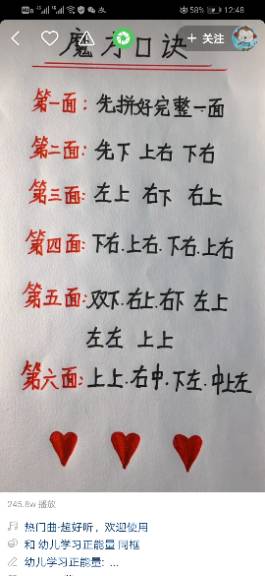 58% 12:48
魔方口诀
+ 关注
第一面：先拼好完整一面
第二面：先下 上右 下右
第三面：左上 右下 右上
第四面：下右.上右.下右.上右
第五面：双下.右上.右下 左上
左左 上上
第六面：上上.右中.下左.中上左
245.8w 播放
热门曲-超好听，欢迎使用
和 幼儿学习正能量 同框
幼儿学习正能量: ...